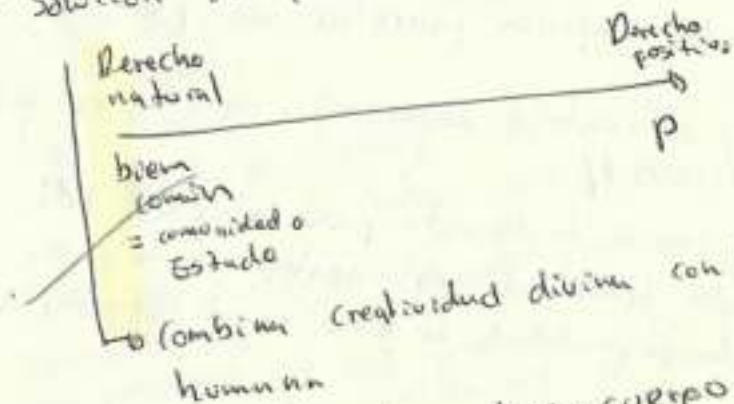 solución
Derecho
natural
Derecho
positivo
P
bien
común
= comunidad o
Estado
Combina creatividad divina con
humana
cuerpo